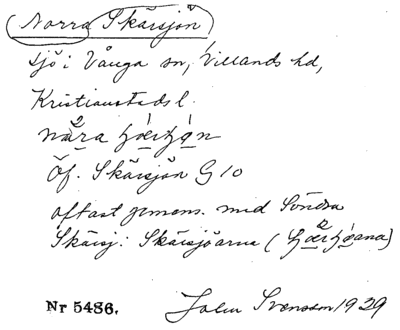 Norra Skärsjön
sjö i Vånga sn, Villands hd,
Kristianstads l.
Öf. Skärsjön G 10
oftast gemens. med Södra
Skärsj: Skärsjöarna (
Nr 5436. John Svensson 1929